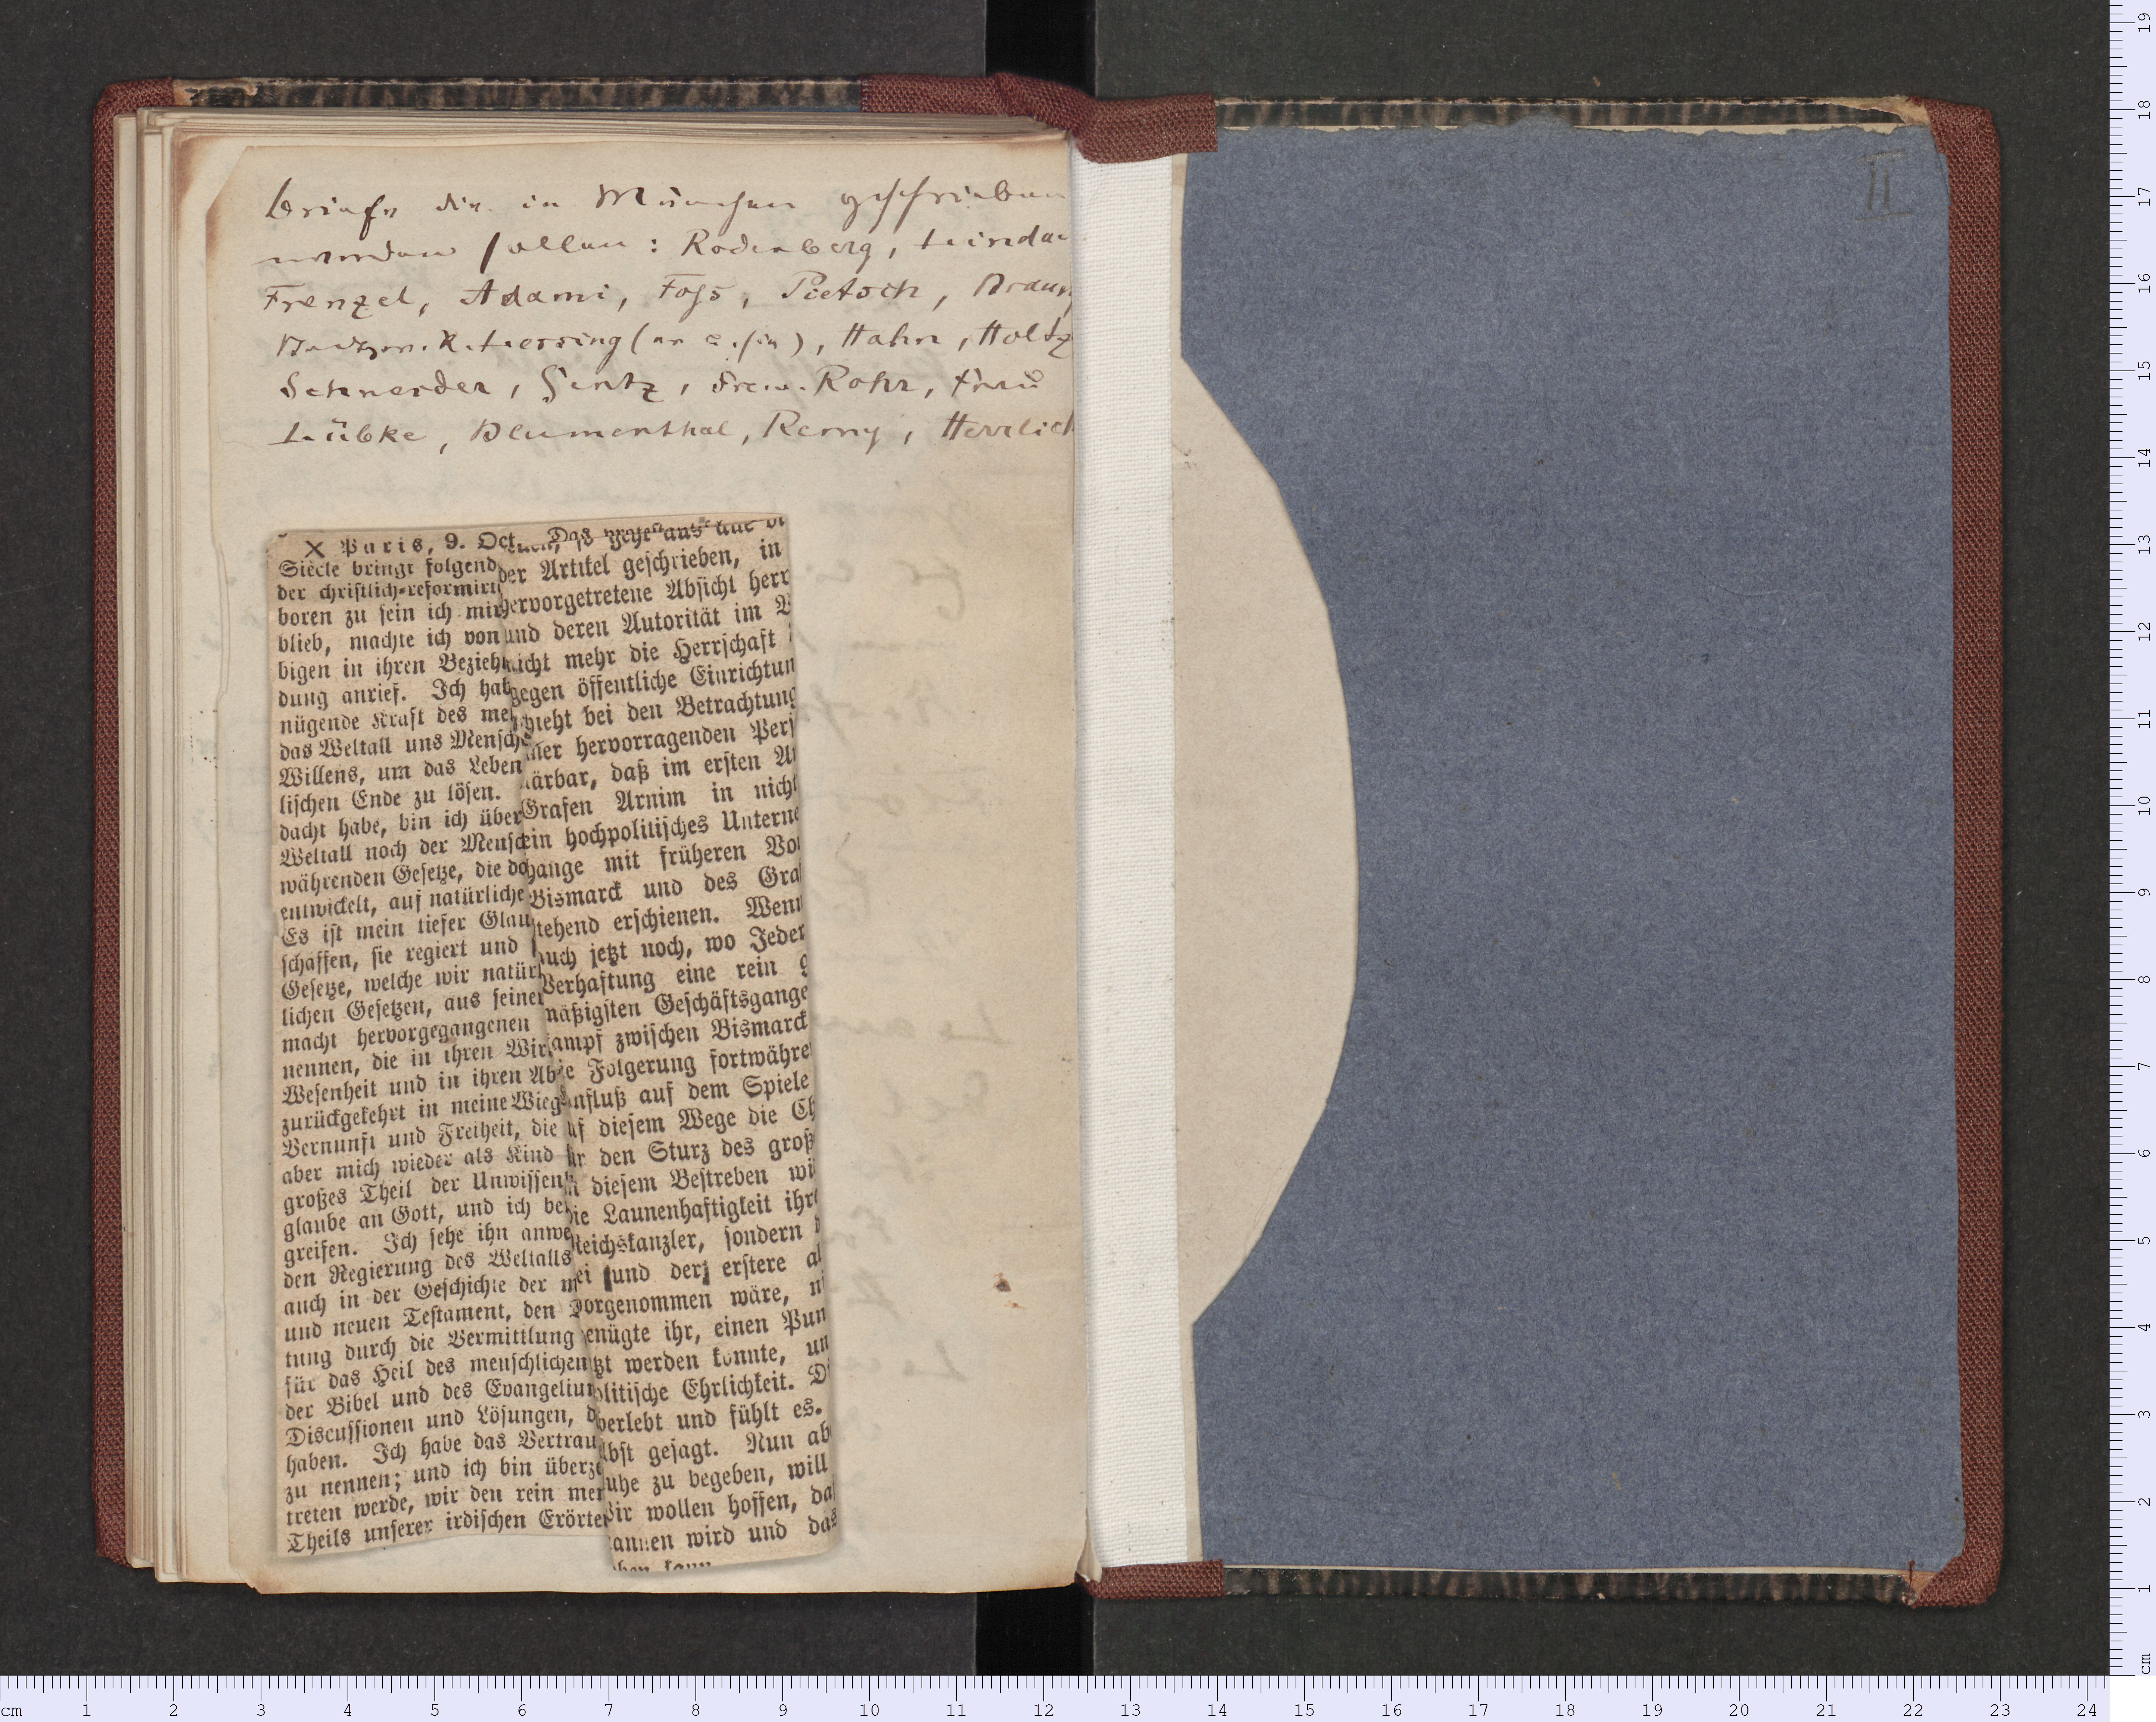 Briefe die in München geschrieben
werden sollen: Rodenberg, Linda
Frenzel, Adami, Foss, Pietsch, Braun
Lessing (an), Hahn, Holtz
Schneider, Gentz, Frau
Lübke, Blumenthal, Remy, Herrlich
II
× Paris, 9. Oct
Siècle bringt folgend
der christlich-reformirt
boren zu sein ich mir
blieb, machte ich von
bigen in ihren Bezieh
dung anrief. Ich hab
nügende Kraft des me
das Weltall uns Mensche
Willens, um das Leben
lischen Ende zu lösen.
dacht habe, bin ich über
Weltall noch der Mensc
währenden Gesetze, die do
entwickelt, auf natürliche
Es ist mein tiefer Glau
schaffen, sie regiert und
Gesetze, welche wir natürl
lichen Gesetzen, aus seiner
macht hervorgegangenen
nennen, die in ihren Wirk
Wesenheit und in ihren Ab
zurückgekehrt in meine Wieg
Vernunft und Freiheit, die
aber mich wieder als Kind
großes Theil der Unwissen
glaube an Gott, und ich be
greifen. Ich sehe ihn anwe
den Regierung des Weltalls
auch in der Geschichte der m
und neuen Testament, den
tung durch die Vermittlung
für das Heil des menschlichen
der Bibel und des Evangelium
Discussionen und Lösungen, d
haben. Ich habe das Vertrau
zu nennen; und ich bin überze
treten werde, wir den rein men
Theils unserer irdischen Erörte
Das
der Artikel geschrieben, in
hervorgetretene Absicht herr
und deren Autorität im
nicht mehr die Herrschaft
gegen öffentliche Einrichtun
zieht bei den Betrachtung
ner hervorragenden Pers
lärbar, daß im ersten A
Grafen Arnim in nicht
ein hochpolitisches Unterne
hange mit früheren Vo
Bismarck und des Gra
stehend erschienen. Wenn
auch jetzt noch, wo Jeder
Verhaftung eine rein g
mäßigsten Geschäftsgange
ampf zwischen Bismarck
ie Folgerung fortwähre
influß auf dem Spiele
uf diesem Wege die Ch
ür den Sturz des groß
n diesem Bestreben wi
die Launenhaftigkeit ihre
Reichskanzler, sondern d
ei und der erstere al
vorgenommen wäre, ni
enügte ihr, einen Pun
tzt werden konnte, un
olitische Ehrlichkeit. D
verlebt und fühlt es.
lbst gesagt. Nun ab
uhe zu begeben, will
Wir wollen hoffen, da
annen wird und das
ben kann
cm 1 2 3 4 5 6 7 8 9 10 11 12 13 14 15 16 17 18 19 20 21 22 23 24
19
18
17
16
15
14
13
12
11
10
9
8
7
6
5
4
3
2
1
cm